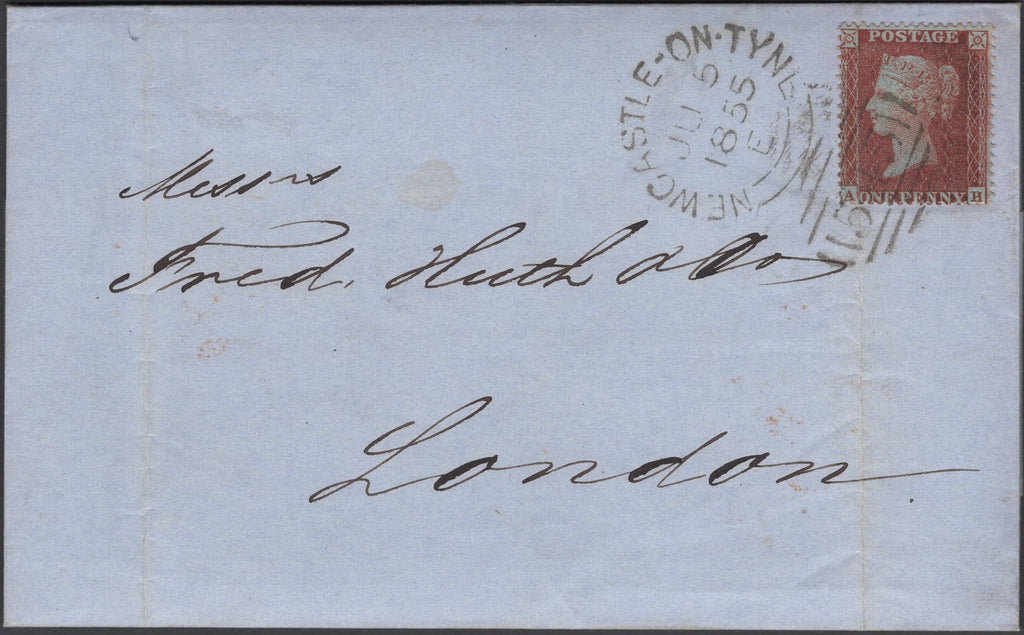 NEWCASTLE-ON-TYNE
JU 5
1855
E
POSTAGE
A ONE PENNY H
Messrs
Fred. Huth & Co
London